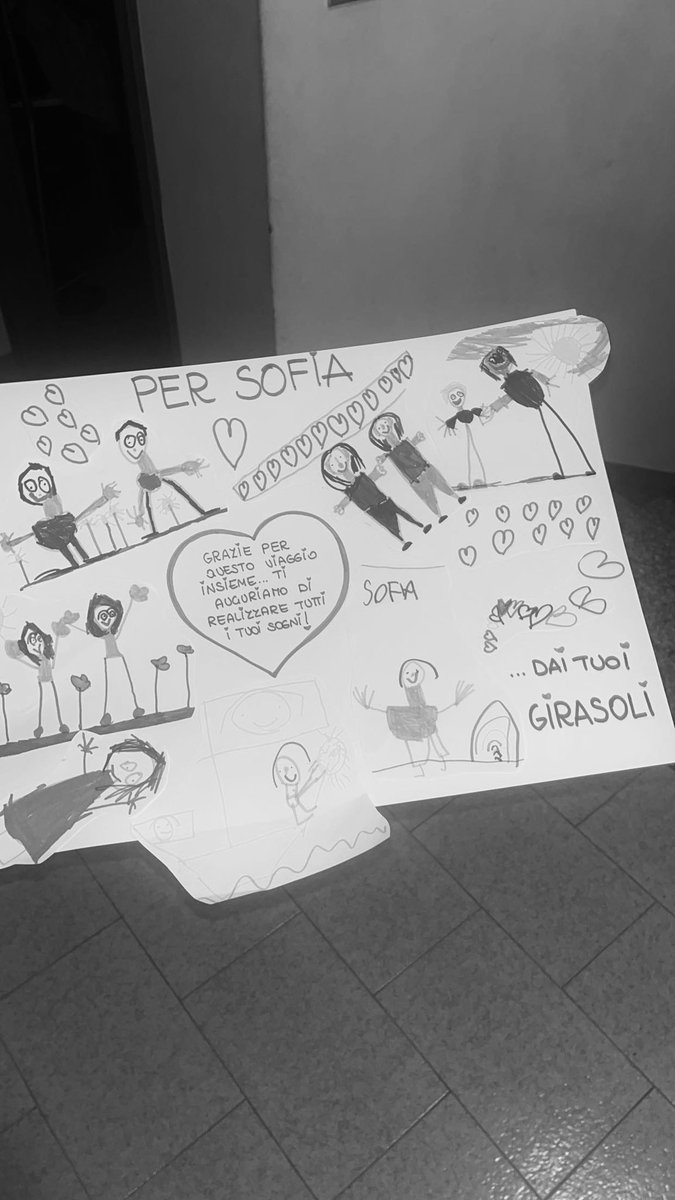 PER SOFIA
GRAZIE PER
QUESTO VIAGGIO
INSIEME... TI
AUGURIAMO DI
REALIZZARE TUTTI
I TUOI SOGNI!
SOFIA
... DAI TUOI
GIRASOLI